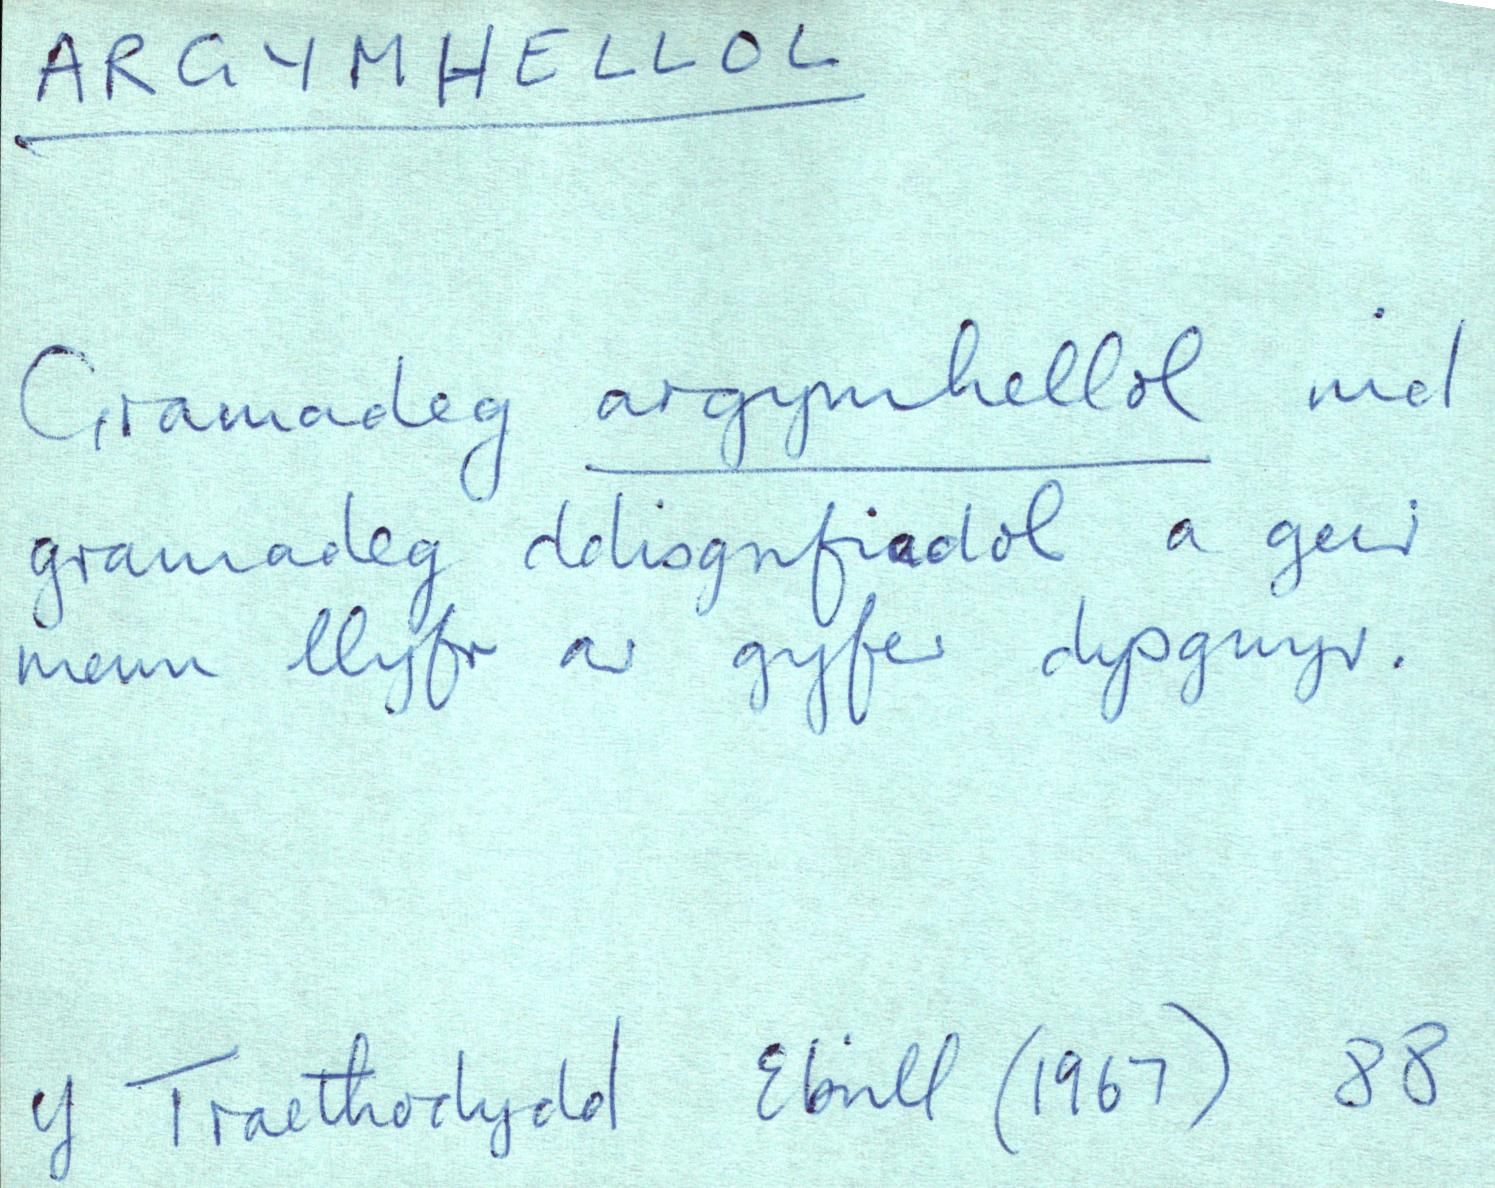 ARGYMHELLOL
Gramadeg argymhellol nid
gramadeg ddisgrifiadol a geir
mewn llyfr ar gyfer dysgwyr.
Y Traethodydd Ebrill (1967) 88